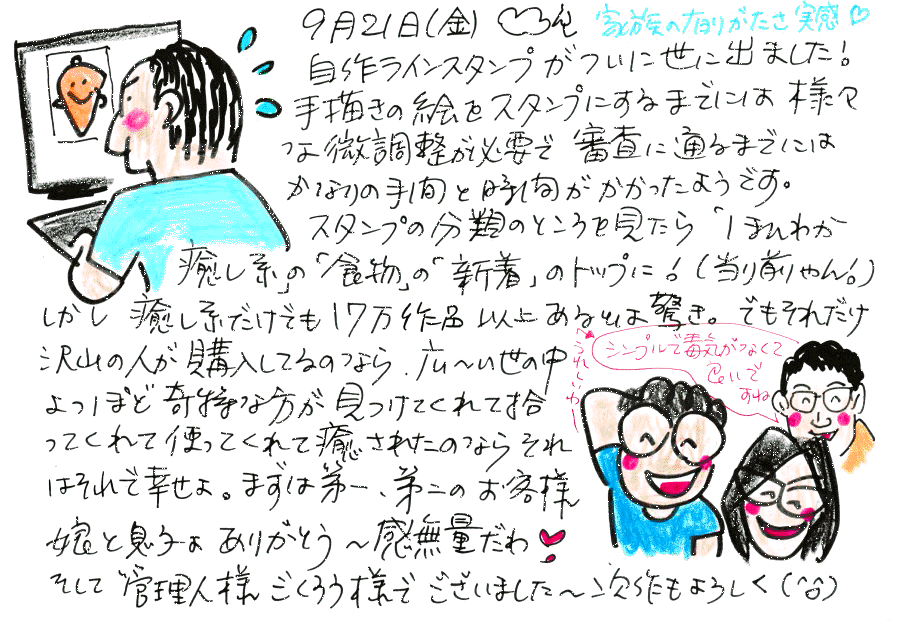 9月21日(金) 家族の有りがたさ実感♡
自作ラインスタンプがついに世に出ました!
手描きの絵をスタンプにするまでには様々
な微調整が必要で審査に通るまでには
かなりの手間と時間がかかったようです。
スタンプの分類のところを見たら「ほんわか
癒し系」の「食物」の「新着」のトップに!(当り前やん!)
しかし癒し系だけでも17万作品以上あるとは驚き。でもそれだけ
沢山の人が購入してるのなら、広〜い世の中
よっぽど奇特な方が見つけてくれて拾
ってくれて使ってくれて癒されたのならそれ
はそれで幸せよ。まずは第一、第二のお客様
嫁と息子よありがとう〜感無量だわ
そして管理人様ごくろう様でございました〜次作もよろしく(^o^)
シンプルで毒気がなくて
いいで
すね
うれしいわ